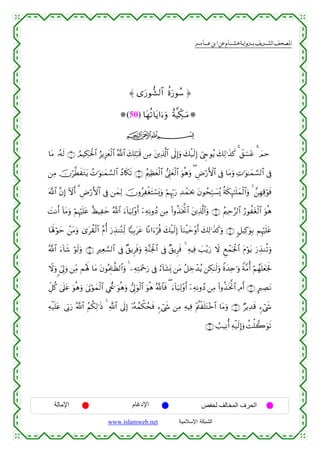 المصحف الشريف برواية هشام عن ابن عامر
﴿ سُورَةُ ٱلشُّورَىٰ ﴾
*(مَكِّيَّةٌ وَءَايَاتُهَا (50*
بِسْمِ ٱللَّهِ ٱلرَّحْمَٰنِ ٱلرَّحِيمِ
حمٓ عٓسٓقٓ كَذَٰلِكَ يُوحِىٓ إِلَيْكَ وَإِلَى ٱلَّذِينَ مِن قَبْلِكَ ٱللَّهُ ٱلْعَزِيزُ ٱلْحَكِيمُ ۝ لَهُۥ مَا
فِى ٱلسَّمَٰوَٰتِ وَمَا فِى ٱلْأَرْضِ وَهُوَ ٱلْعَلِىُّ ٱلْعَظِيمُ ۝ تَكَادُ ٱلسَّمَٰوَٰتُ يَتَفَطَّرْنَ مِن
فَوْقِهِنَّ وَٱلْمَلَٰٓئِكَةُ يُسَبِّحُونَ بِحَمْدِ رَبِّهِمْ وَيَسْتَغْفِرُونَ لِمَن فِى ٱلْأَرْضِ أَلَآ إِنَّ ٱللَّهَ
هُوَ ٱلْغَفُورُ ٱلرَّحِيمُ ۝ وَٱلَّذِينَ ٱتَّخَذُوا۟ مِن دُونِهِۦٓ أَوْلِيَآءَ ٱللَّهُ حَفِيظٌ عَلَيْهِمْ وَمَآ أَنتَ
عَلَيْهِم بِوَكِيلٍ ۝ وَكَذَٰلِكَ أَوْحَيْنَآ إِلَيْكَ قُرْءَانًا عَرَبِيًّا لِّتُنذِرَ أُمَّ ٱلْقُرَىٰ وَمَنْ حَوْلَهَا
وَتُنذِرَ يَوْمَ ٱلْجَمْعِ لَا رَيْبَ فِيهِ فَرِيقٌ فِى ٱلْجَنَّةِ وَفَرِيقٌ فِى ٱلسَّعِيرِ ۝ وَلَوْ شَآءَ ٱللَّهُ
لَجَعَلَهُمْ أُمَّةً وَٰحِدَةً وَلَٰكِن يُدْخِلُ مَن يَشَآءُ فِى رَحْمَتِهِۦ وَٱلظَّٰلِمُونَ مَا لَهُم مِّن وَلِىٍّ وَلَا
نَصِيرٍ ۝ أَمِ ٱتَّخَذُوا۟ مِن دُونِهِۦٓ أَوْلِيَآءَ فَٱللَّهُ هُوَ ٱلْوَلِىُّ وَهُوَ يُحْىِ ٱلْمَوْتَىٰ وَهُوَ عَلَىٰ كُلِّ
شَىْءٍ قَدِيرٌ ۝ وَمَا ٱخْتَلَفْتُمْ فِيهِ مِن شَىْءٍ فَحُكْمُهُۥٓ إِلَى ٱللَّهِ ذَٰلِكُمُ ٱللَّهُ رَبِّى عَلَيْهِ
تَوَكَّلْتُ وَإِلَيْهِ أُنِيبُ ۝
الحرف المخالف لحفص الإدغام الإمالة
الشبكة الإسلامية www.islamweb.net